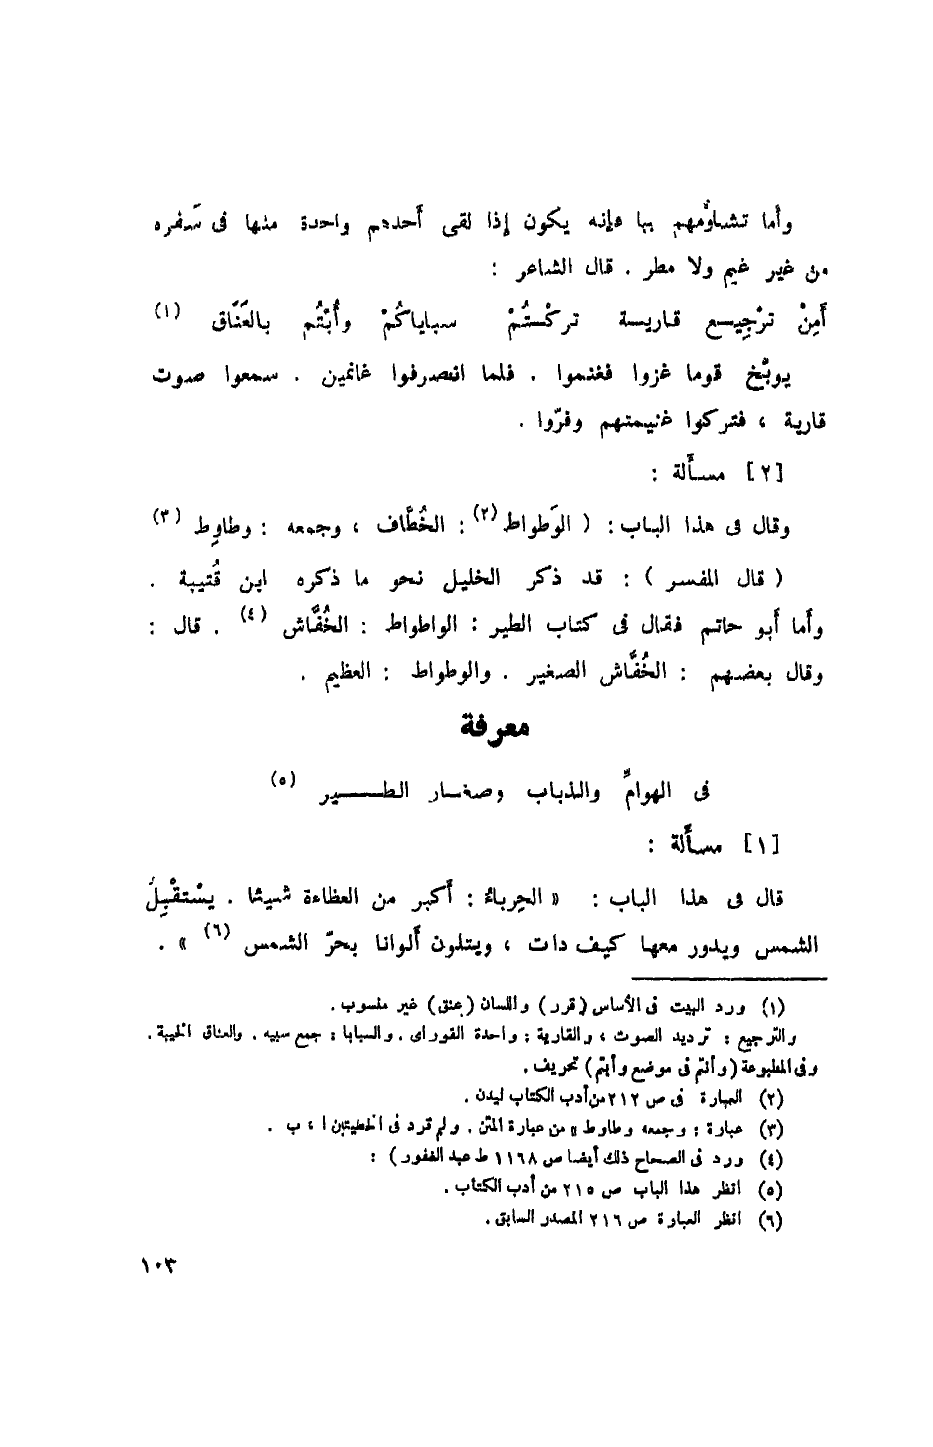 وأما تشاؤمهم بها فإنه يكون إذا لقى أحدهم واحدة منها فى سَفره
من غير غيم ولا مطر . قال الشاعر :
أَمِنْ ترْجِيـع قاريـة تركْـتُمْ سباياكُمْ وأُبْتُم بالعَنَاق (١)
يوبِّخ قوما غزوا فغنموا . فلما انصرفوا غانمين . سمعوا صوت
قارية ، فتركوا غنيمتهم وفرّوا .
[٢] مسـألة :
وقال فى هذا الباب : ( الوَطواط (٢) : الخُطَّاف ، وجمعه : وطاوِط (٣)
( قال المفسر ) : قد ذكر الخليل نحو ما ذكره ابن قُتيبة .
وأما أبو حاتم فقال فى كتاب الطير : الواطواط : الخُفَّاش (٤) . قال :
وقال بعضهم : الخُفَّاش الصغير . والوطواط : العظيم .
معرفة
فى الهوامِّ والذباب وصغـار الطـــــير (٥)
[١] مسـألة :
قال فى هذا الباب : « الحِرباءُ : أكبر من العظاءة شيئا . يسْتقْبِلُ
الشمس ويدور معها كيف دات ، ويتلون ألوانا بحرّ الشمس (٦) » .
(١) ورد البيت فى الأساس (قرر) واللسان (عنق) غير منسوب .
والترجيع : ترديد الصوت ، والقارية : واحدة القوراى . والسبايا : جمع سبيه . والعناق الخيبة .
وفى المطبوعة (وأنتم فى موضع وأبتم) تحريف .
(٢) العبارة فى ص ٢١٢ من أدب الكتاب ليدن .
(٣) عبارة : وجمعه وطاوط » من عبارة المتن . ولم ترد فى الخطيتين ا ، ب .
(٤) ورد فى الصحاح ذلك أيضا ص ١١٦٨ ط عبد الغفور ) :
(٥) انظر هذا الباب ص ٢١٥ من أدب الكتاب .
(٦) انظر العبارة ص ٢١٦ المصدر السابق .
١٠٣